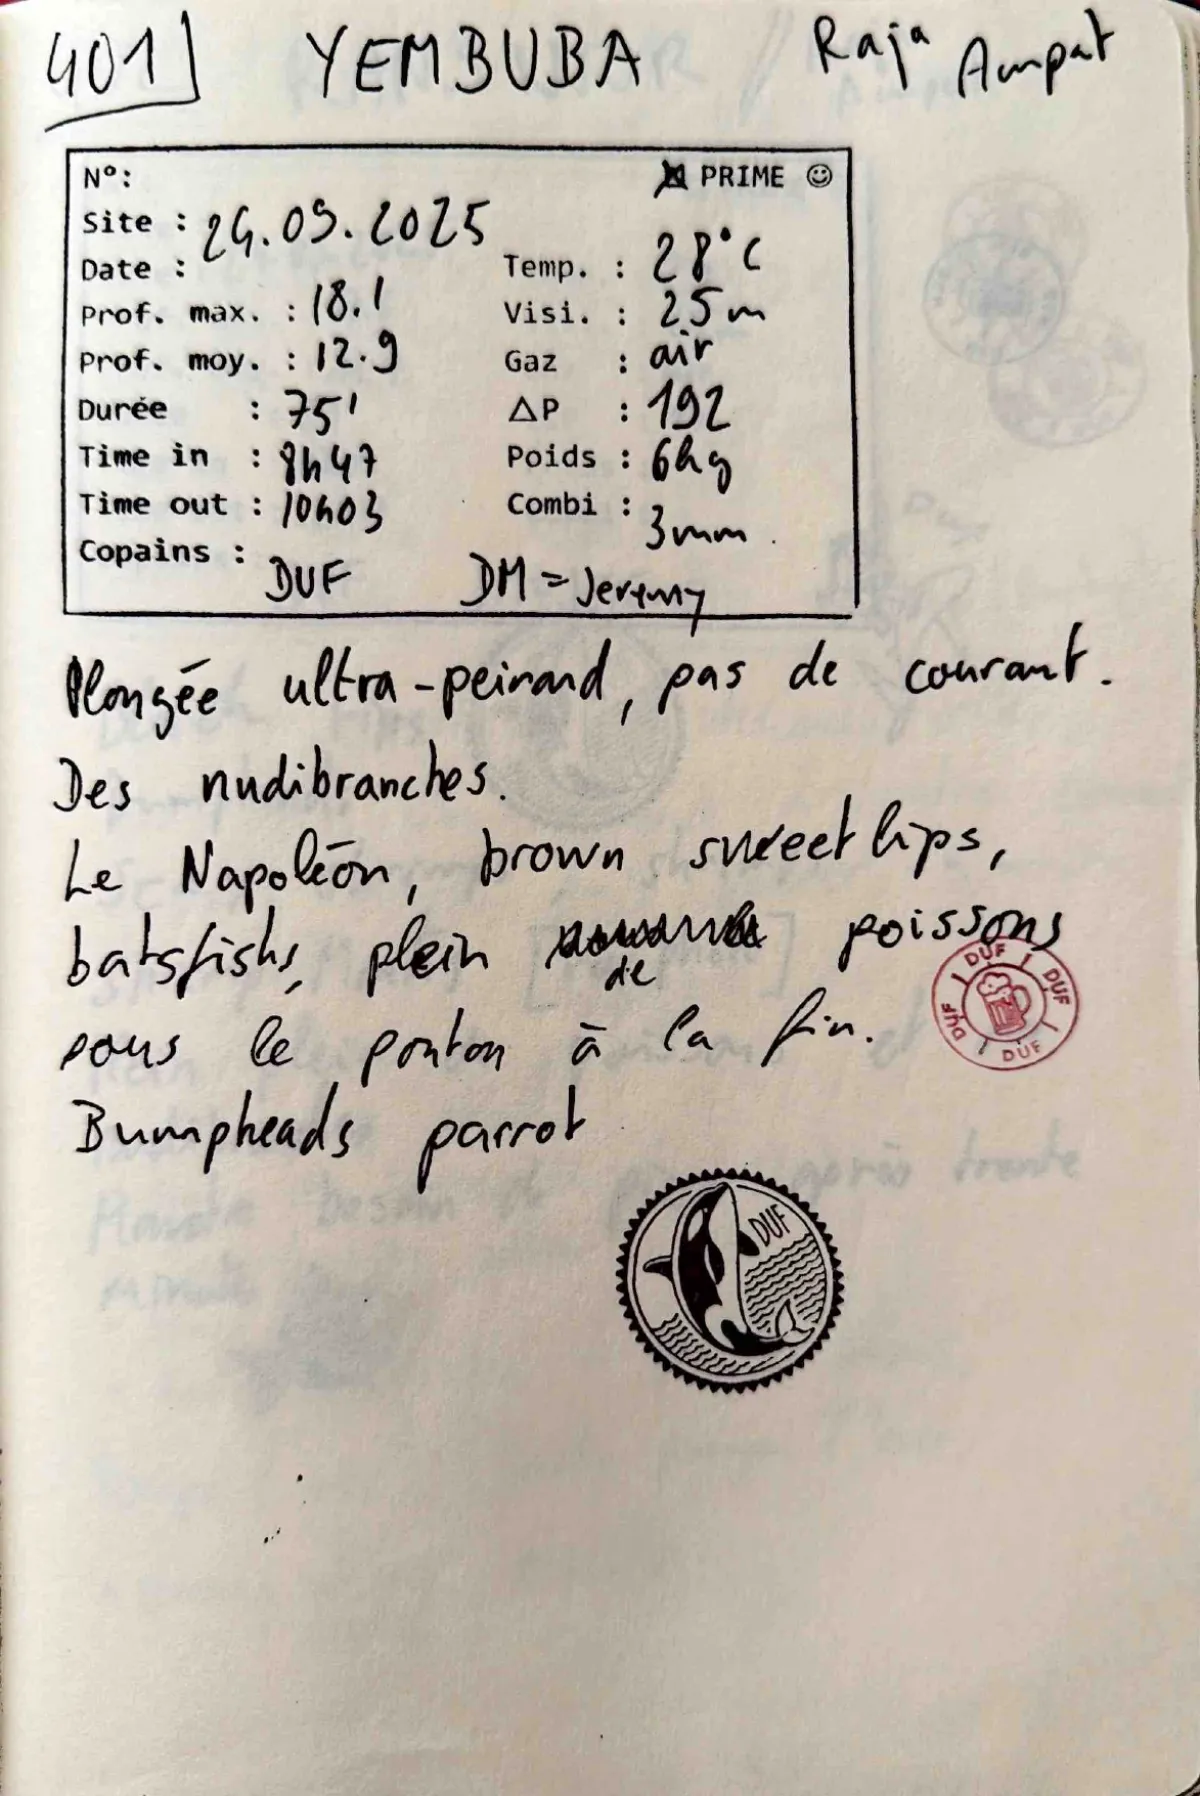 401] YEMBUBA Raja Ampat
N°: PRIME ☺
Site :
24.09.2025
Date : Temp. : 28°C
Prof. max. : 18.1 Visi. : 25m
Prof. moy. : 12.9 Gaz : air
Durée : 75' ΔP : 192
Time in : 8h47 Poids : 6kg
Time out : 10h03 Combi : 3mm.
Copains : DUF DM = Jeremy
Plongée ultra-peinard, pas de courant.
Des nudibranches.
Le Napoléon, brown sweetlips,
batsfishs, plein de poissons
sous le ponton à la fin.
Bumpheads parrot
DUF DUF DUF DUF
DUF